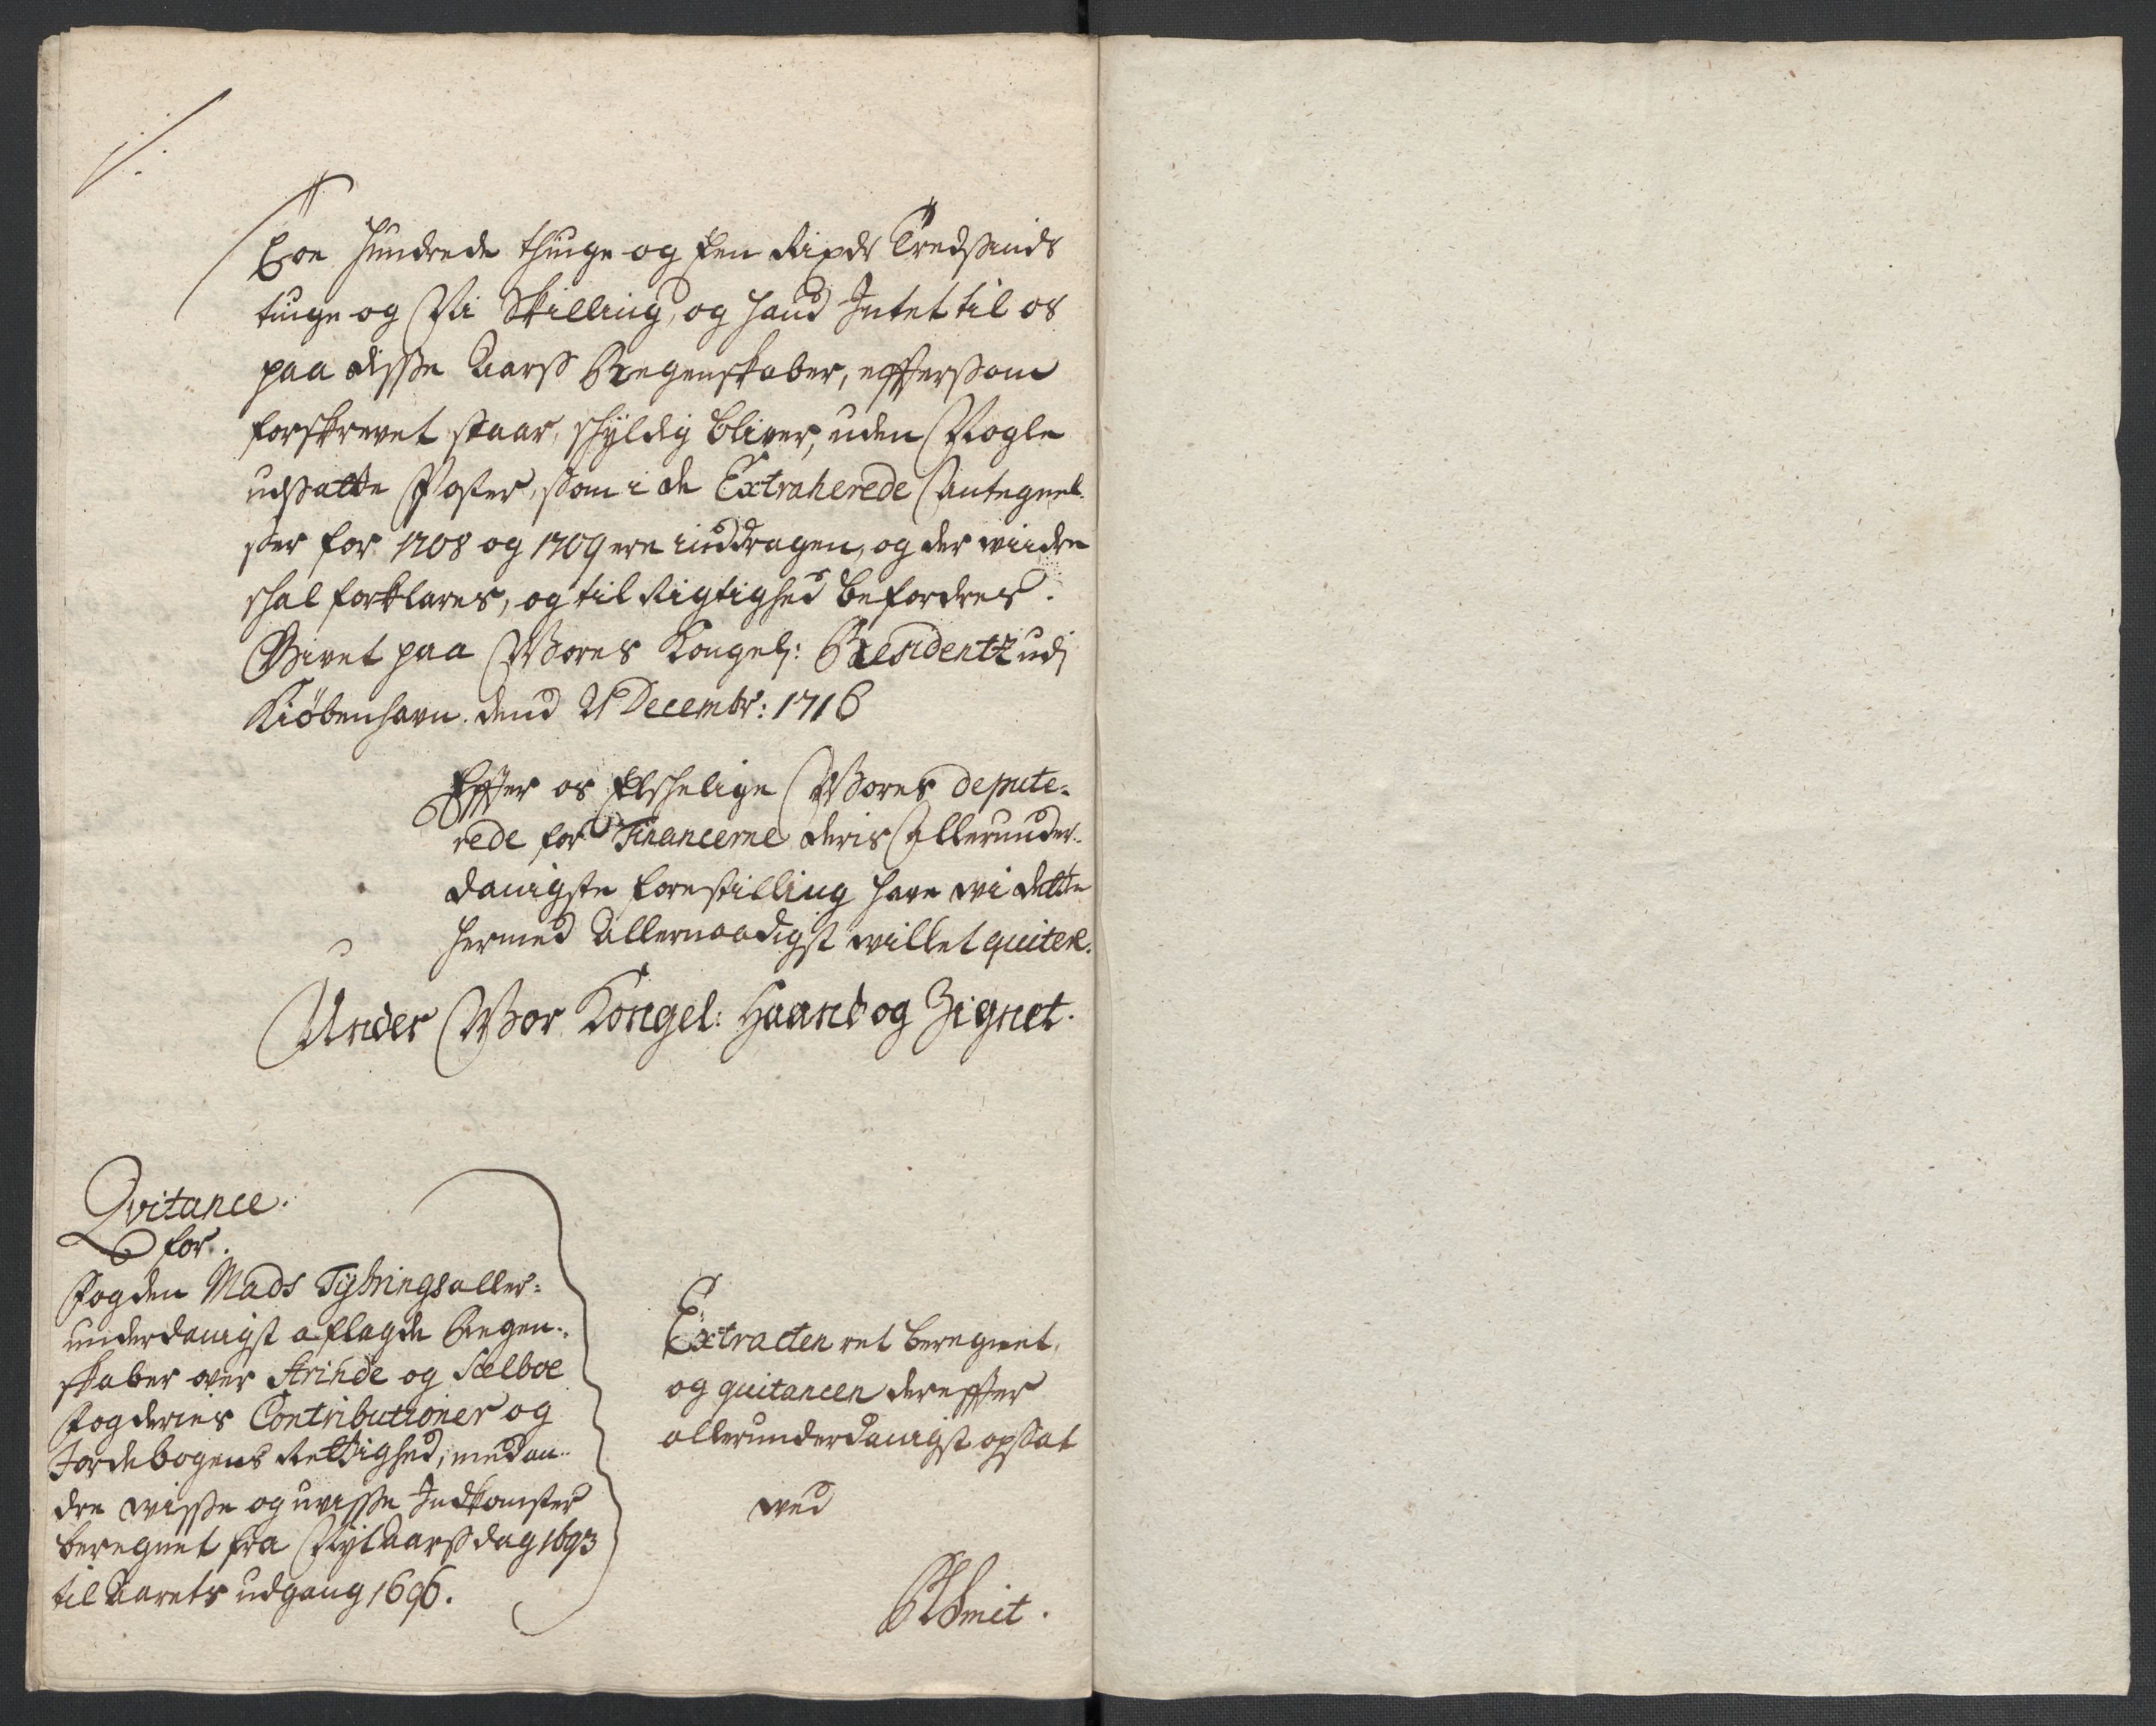 Toe Hundrede thiuge og fem Rixdr Tredsinds
tiuge og Ni Skilling, og hand Intet til os
paa disse Aarss Regenskaber, effterssom
forskrevet staar, schÿldig bliver, uden Nogle
udssatte Poster, ssom i de Extraherede Antegnel-
sser for 1708 og 1709 ere inddragen, og der viidre
schal forklares, og til Rigtighed befordres.
Givet paa Vores Kongel: Residentz udj
Kiöbenhavn. dend 21 Decembr: 1716
Effter os Elschelige Vores depute-
rede for Financerne deris Allerunder-
danigste forestilling have vi dette
hermed Allernaadigst villet quitere.
Under Vor Kongel: Haand og Zignet.
Qvitance.
for.
Fogden Mads Tyhrings aller-
underdanigst aflagde Regen-
skaber over Strinde og Selboe
Fogderies Contributioner og
Jordebogens Rettighed, med an-
dre visse og uvisse Indkomster
beregnet fra Nyt Aarss dag 1693
til Aarets udgang 1696.
Extracten ret beregnet,
og quitancen dereffter
allerunderdanigst opssat
ved
RSmit.